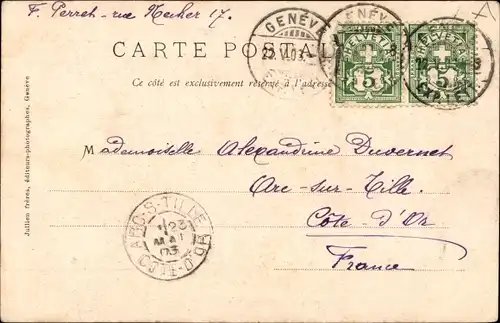 F. Perret - rue Necker 17.
CARTE POSTALE
Ce côté est exclusivement réservé à l'adresse
GENÈVE
22.V.03.
GENÈVE
HELVETIA
5
HELVETIA
5
EXP. LET.
Mademoiselle Alexandrine Duvernet
Arc-sur-Tille
Côte d'Or
France
ARC-S-TILLE
23
MAI
03
COTE-D'OR
Jullien frères, éditeurs-photographes, Genève